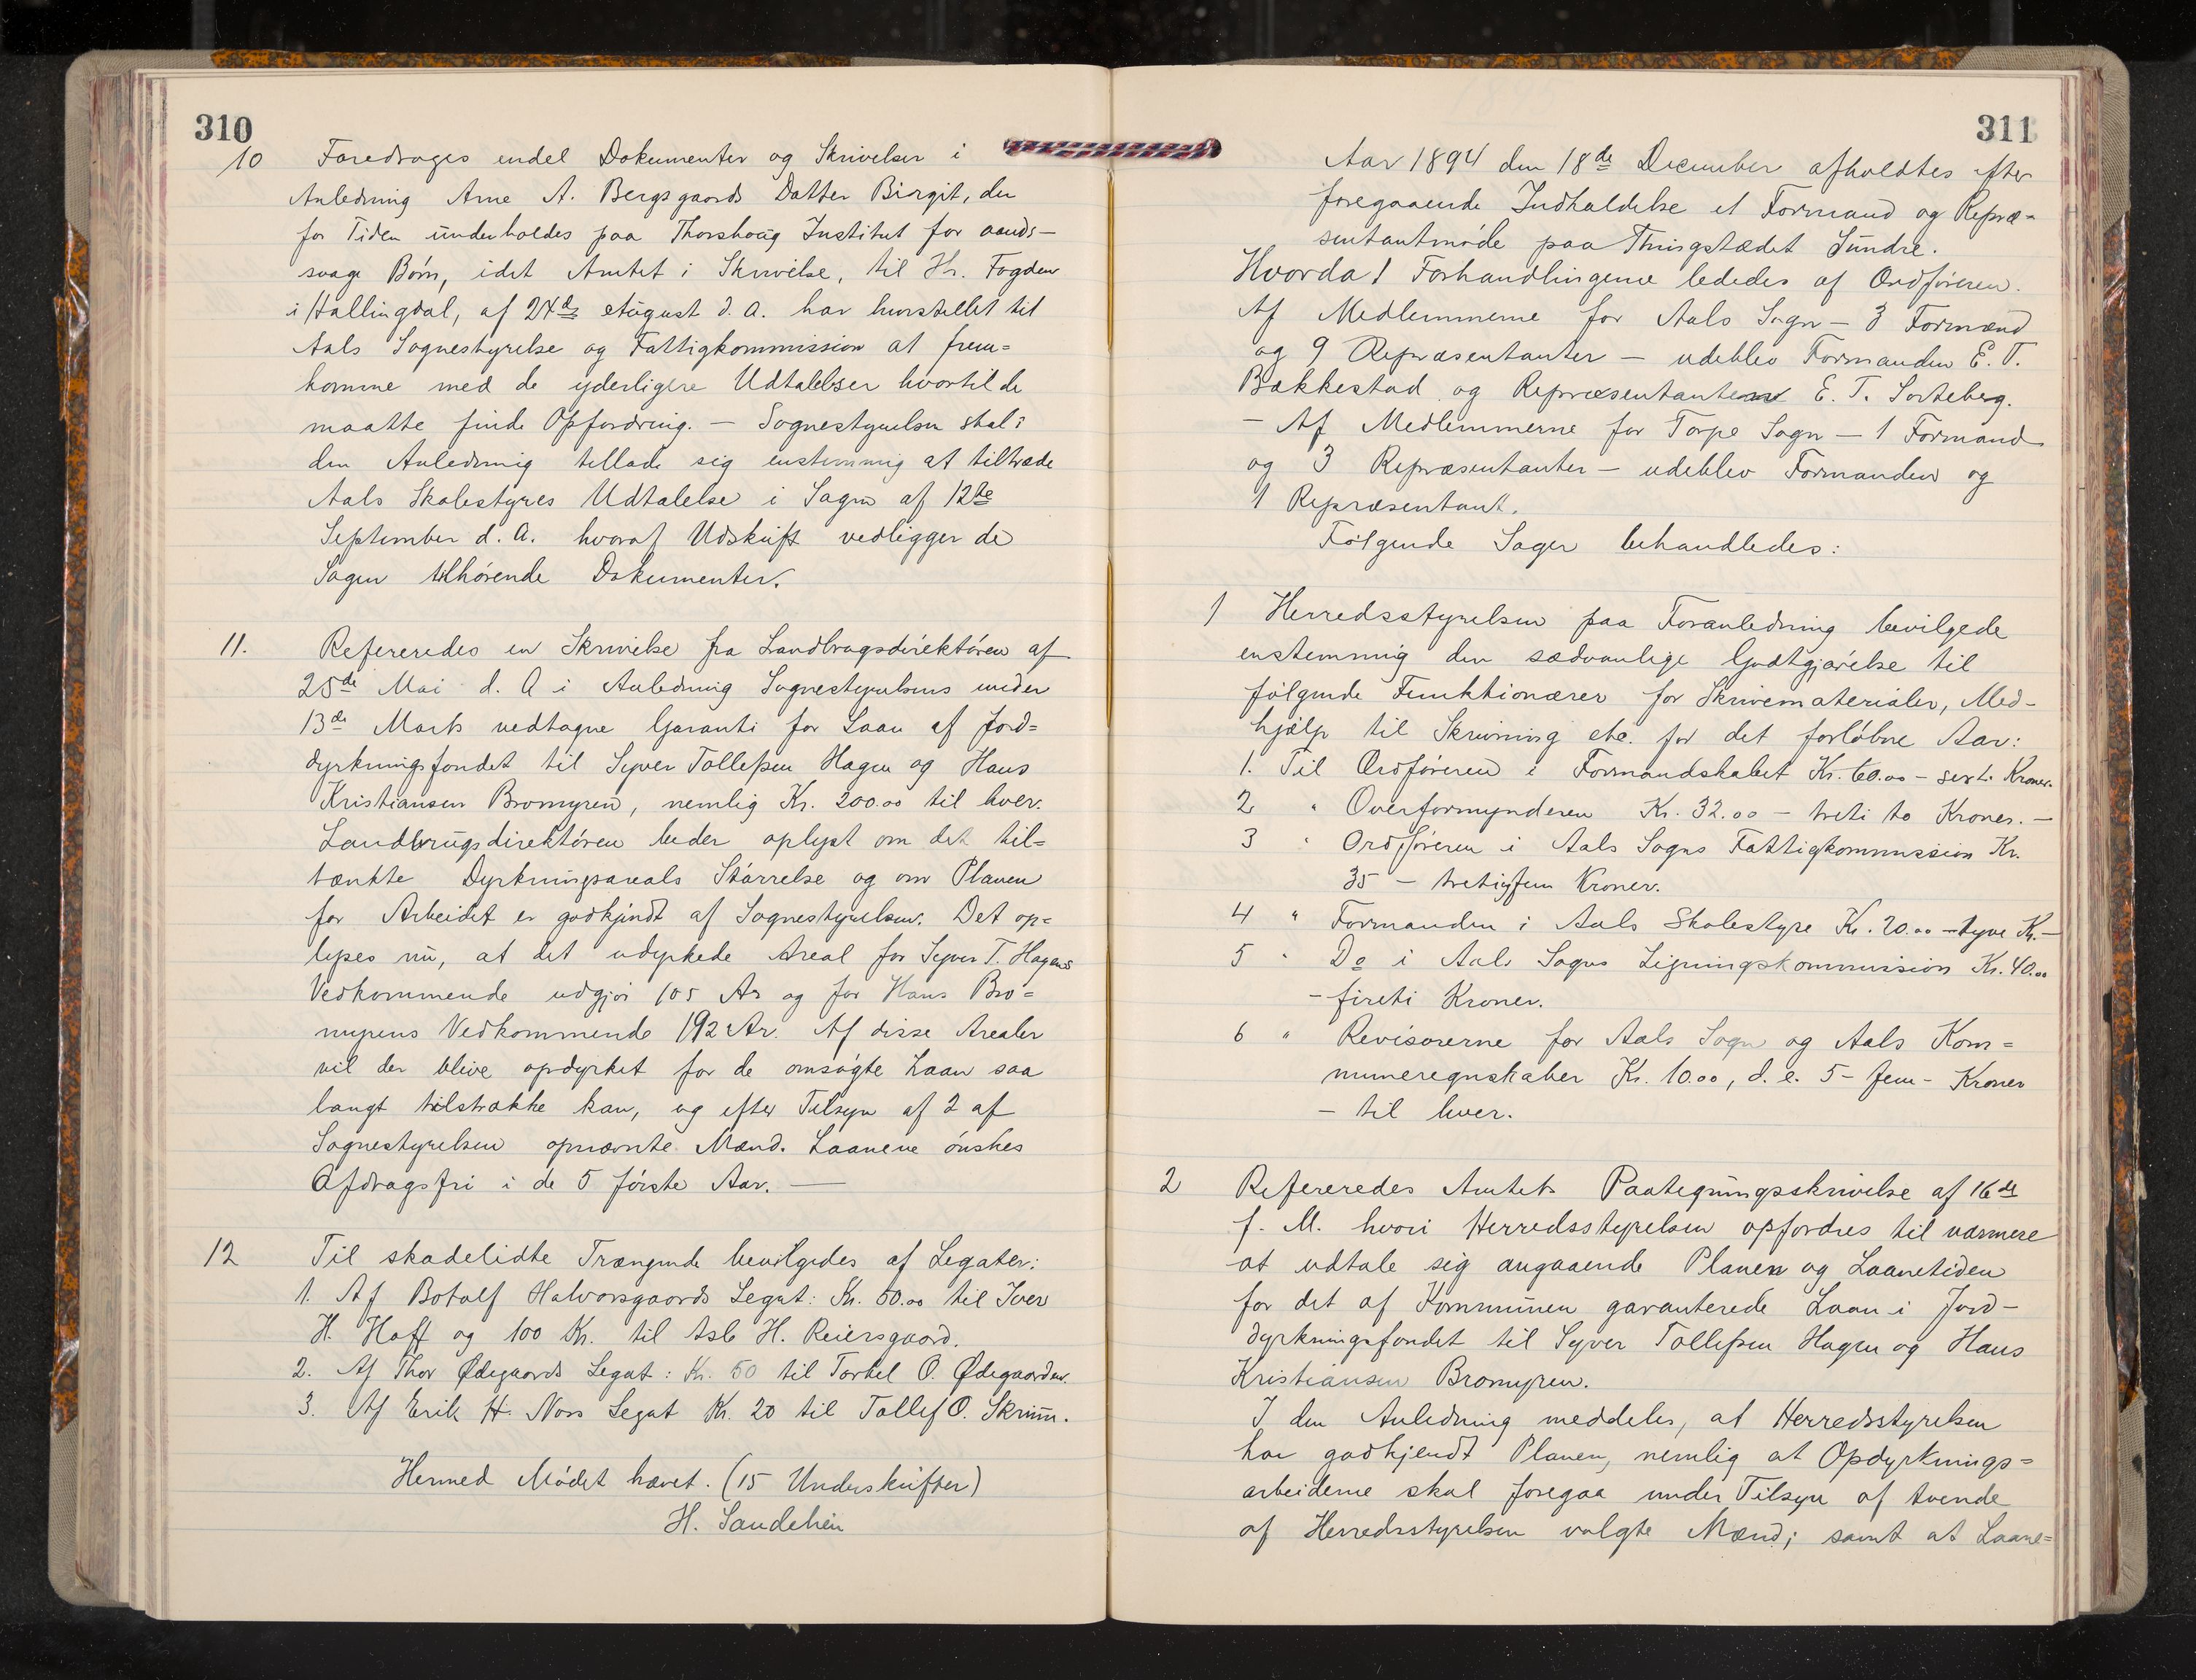 310
10 Foredroges endel Dokumenter og Skrivelser i
Anledning Arne A. Bergsgaards Datter Birgit, der
for Tiden underholdes paa Thorshoug Institut for aands-
svage Børn, idet Amtet i Skrivelse, til Hr. Fogden
i Hallingdal, af 24de August d. A. har henstillet til
Aals Sognestyrelse og Fattigkommission at frem=
komme med de yderligere Udtalelser hvortil de
maatte finde Opfordring. — Sognestyrelsen skal i
den Anledning tillade sig enstemmig at tiltræde
Aals Skolestyres Udtalelse i Sagen af 12te
September d. A. hvoraf Udskrift vedligger de
Sagen tilhørende Dokumenter.
11. Refereredes en Skrivelse fra Landbrugsdirektøren af
25de Mai d. A i Anledning Sognestyrelsens under
13de Marts vedtagne Garanti for Laan af Jord=
dyrkningsfondet til Syver Tollefsen Hagen og Hans
Kristiansen Bromyren, nemlig Kr. 200.00 til hver.
Landbrugsdirektøren beder oplyst om det til=
tænkte Dyrkningsareals Størrelse og om Planen
for Arbeidet er godkjendt af Sognestyrelsen. Det op=
lyses nu, at det udyrkede Areal for Syver T. Hagens
Vedkommende udgjør 105 Ar og for Hans Bro=
myrens Vedkommende 192 Ar. Af disse Arealer
vil der blive opdyrket for de omsøgte Laan saa
langt tilstrække kan, og efter Tilsyn af 2 af
Sognestyrelsen opnævnte Mænd. Laanene ønskes
Afdragsfri i de 5 første Aar. —
12 Til skadelidte Trængende bevilgedes af Legater:
1. Af Botolf Halvorsgaards Legat: Kr. 50.00 til Iver
H. Hoff og 100 Kr. til Asle H. Reiersgaard.
2. Af Thor Ødegaards Legat: Kr. 50 til Torkel O. Ødegaarden.
3. Af Erik H. Noss Legat Kr. 20 til Tollef O. Skrim.
Hermed Mødet hævet. (15 Underskrifter)
H. Sandehein
311
Aar 1894 den 18de December afholdtes efter
foregaaende Indkaldelse et Formand og Repræ=
sentantmøde paa Thingstædet Sundre.
Hvorda! Forhandlingerne lededes af Ordføreren.
Af Medlemmerne for Aals Sogn — 3 Formænd
og 9 Repræsentanter — udeblev Formanden E. T.
Bakkestad og Repræsentanten E. T. Sorteberg.
— Af Medlemmerne for Torpe Sogn — 1 Formand
og 3 Repræsentanter — udeblev Formanden og
1 Repræsentant.
Følgende Sager behandledes:
1 Herredsstyrelsen paa Foranledning bevilgede
enstemmig den sædvanlige Godtgjørelse til
følgende Funktionærer for Skrivematerialer, Med-
hjælp til Skrivning etc. for det forløbne Aar:
1. Til Ordføreren i Formandskabet Kr. 60.00 — sexti Kroner.
2 " Overformynderen Kr. 32.00 — treti to Kroner. —
3 " Ordføreren i Aals Sogns Fattigkommission Kr.
35 — tretifem Kroner.
4 " Formanden i Aals Skolestyre Kr. 20.00 — tyve Kr. —
5 " Do i Aals Sogns Ligningskommission Kr. 40.00
— fireti Kroner.
6 " Revisorerne for Aals Sogn og Aals Kom=
muneregnskaber Kr. 10.00, d. e. 5 — fem — Kroner
— til hver.
2 Refereredes Amtets Paategningsskrivelse af 16de
f. M. hvori Herredsstyrelsen opfordres til nærmere
at udtale sig angaaende Planen og Laanetiden
for det af Kommunen garanterede Laan i Jord-
dyrkningsfondet til Syver Tollefsen Hagen og Hans
Kristiansen Bromyren.
I den Anledning meddeles, at Herredsstyrelsen
har godkjendt Planen, nemlig at Opdyrknings=
arbeiderne skal foregaa under Tilsyn af tvende
af Herredsstyrelsen valgte Mænd; samt at Laane=